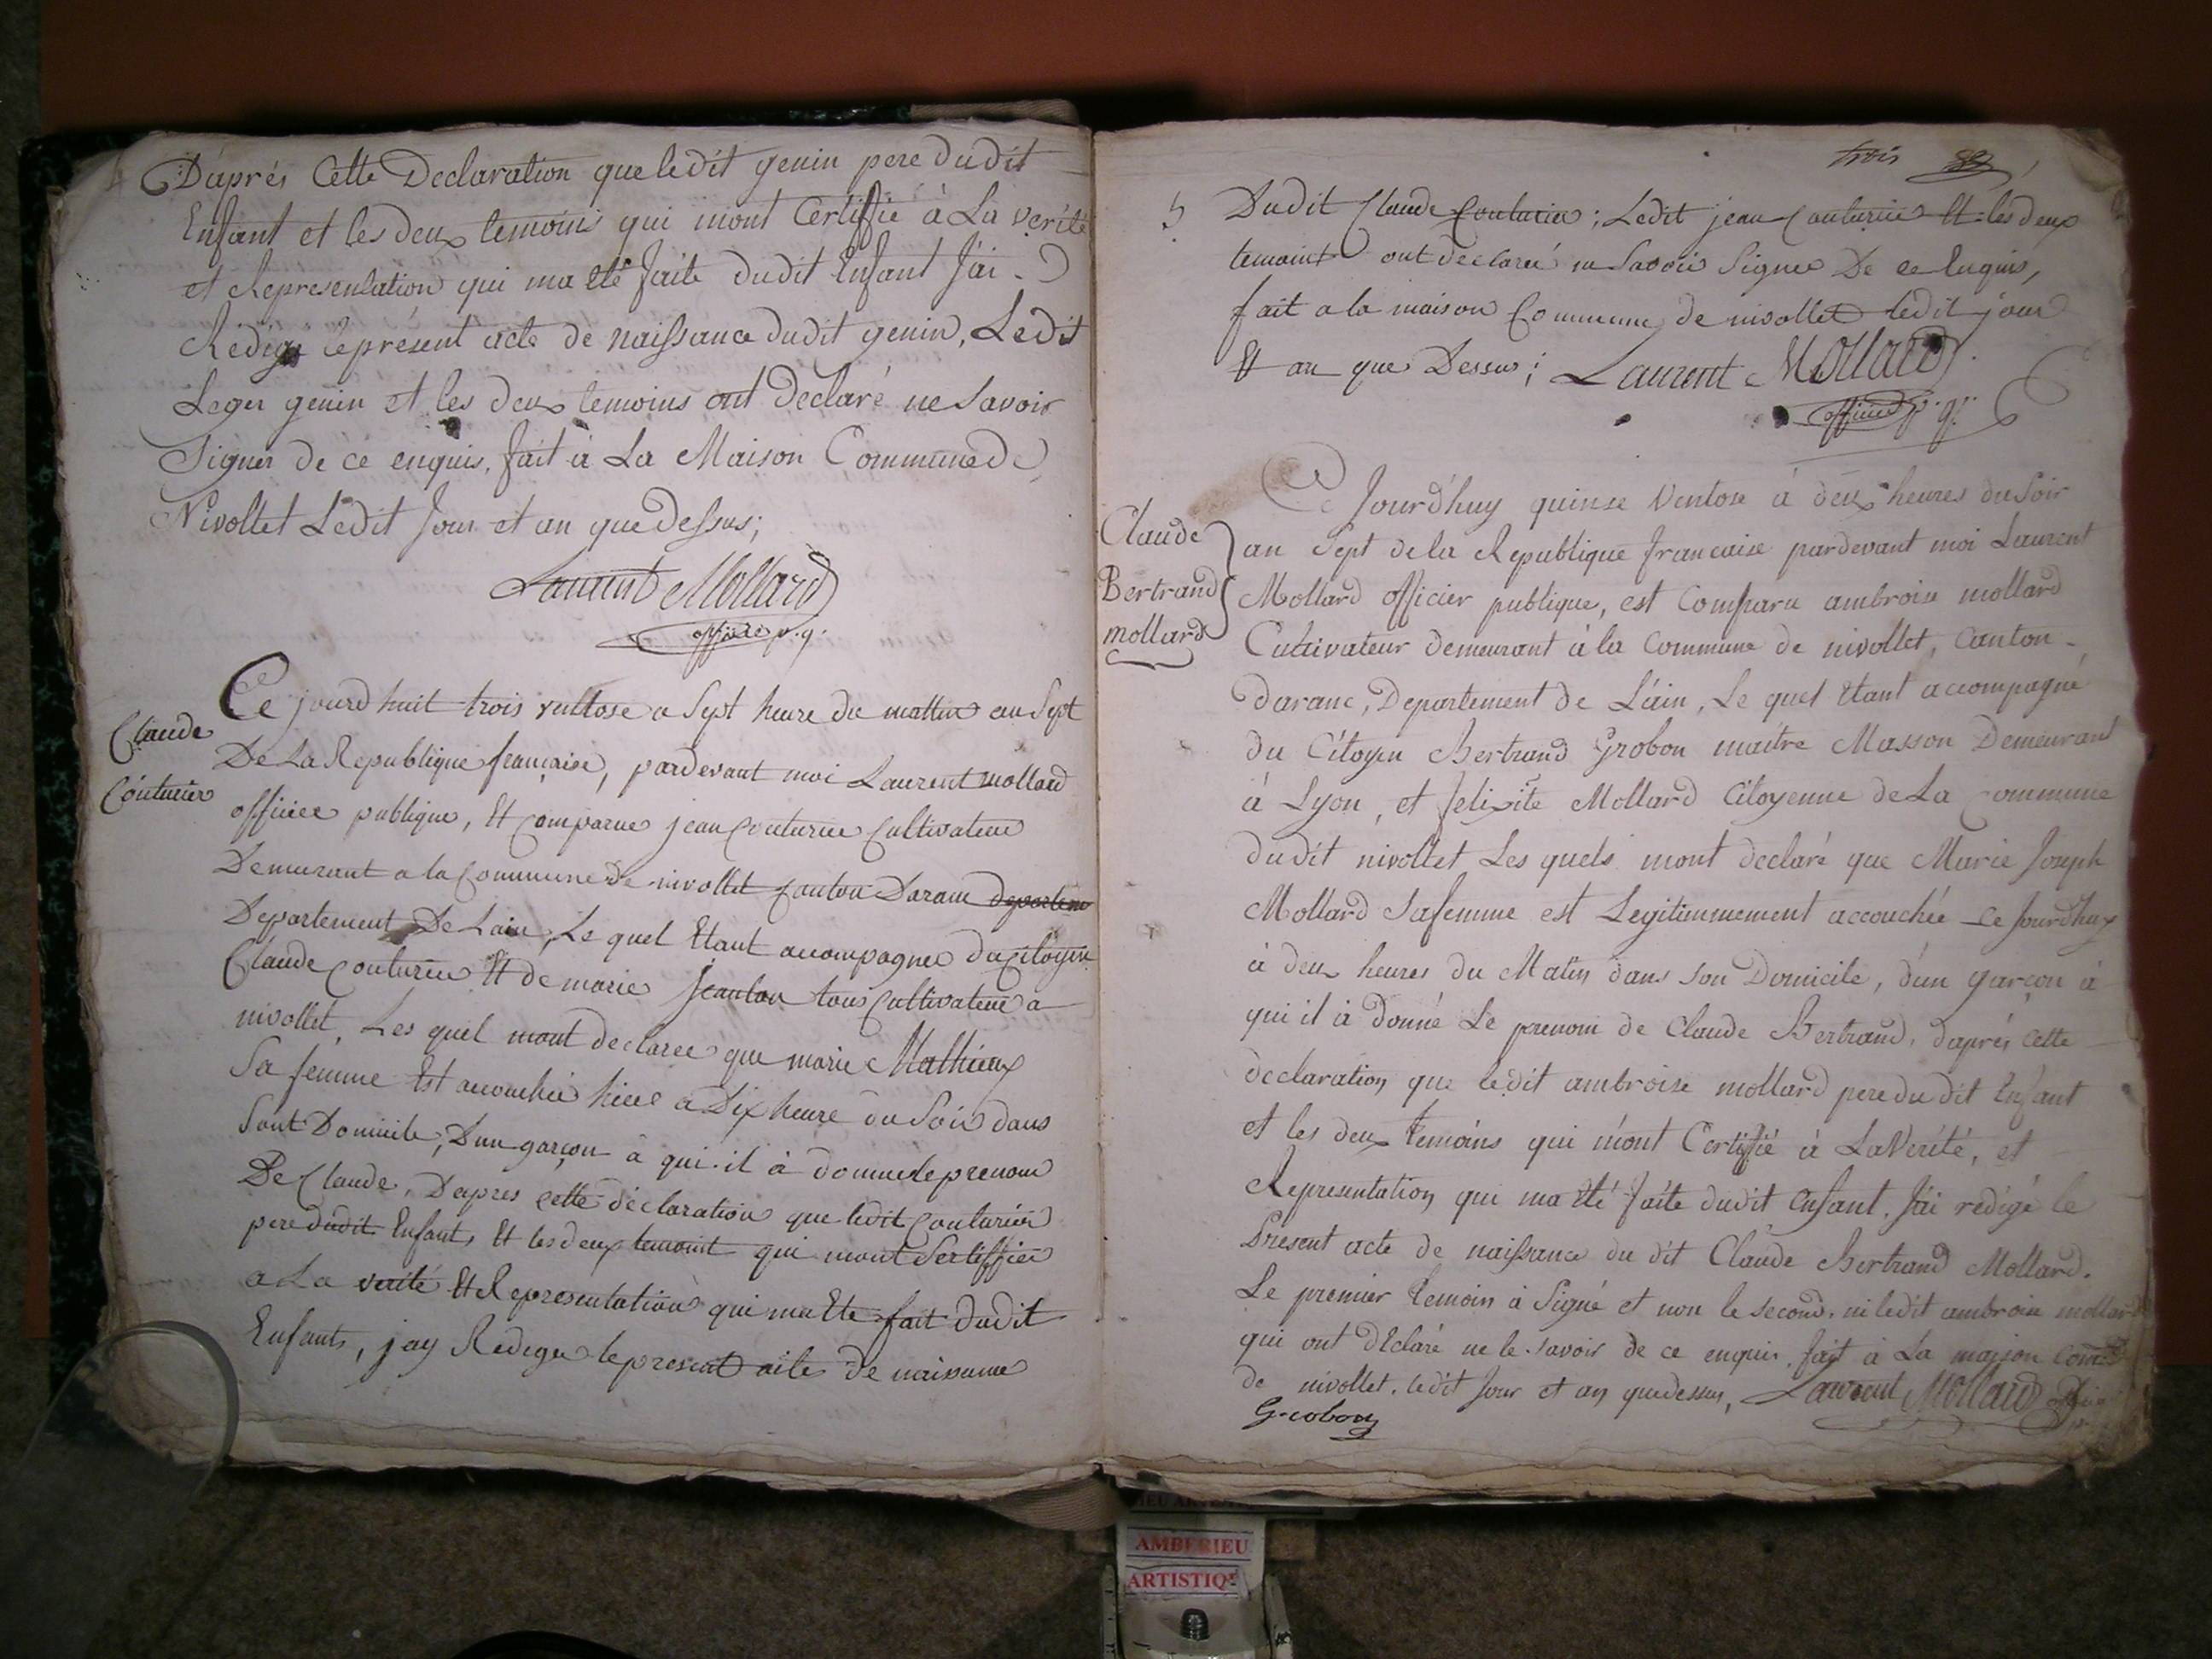 D'aprés Cette Declaration que ledit genin pere dudit
Enfant et les deux temoins qui mont Certiffié à La verité
et Representation qui ma eté faite dudit Enfant J'ai
Rédigé le présent acte de naissance dudit genin, Ledit
Leger genin et les deux temoins ont Declaré ne savoir
Signer de ce enquis, fait à La Maison Commune de
Nivollet Ledit Jour et an que dessus;
Laurent Mollard
officie p.q.
Claude
Couturier
Ce jourd huit trois vultose a Sept heure du mattin an Sept
De La Republique française, pardevant moi Laurent mollard
officier publique, Et Comparue jean Couturier Cultivateur
Demurant a la Commune de nivollet Canton Daranc departem
Departement De Lain, Le quel Etant accompagnee du Citoyen
Claude Couturier Et de marie Jeanton tous Cultivateur a
nivollet, Les quel mont declaree que marie Mathieux
Sa femme Est accouchée hiere a Dix heure du Soir dans
Sont Domicile, D'un garçon à qui il à donné le prenom
De Claude, D'apres cette déclaration que ledit Couturier
pere dudit Enfant, Et les deux temoint qui mont Sertiffiér
a La verité Et Representation qui ma Ete fait dudit
Enfants, jay Redigee le present aite de naisance
trois
5
Dudit Claude Couturier; Ledit jean Couturier Et les deux
temoint ont déclaréé ne Savoir Signer De ce Enquis,
fait a la maison Commune de nivollet ledit jour
Et an que Dessus; Laurent Mollard
officier p.q.
Claude
Bertrand
mollard
Ce Jourd'huy quinze Ventose à deux heures du Soir
an Sept de la Republique francaise pardevant moi Laurent
Mollard officier publique, est Comparu ambroise mollard
Cultivateur demeurant à la Commune de nivollet, Canton
daranc, Departement de L'ain, Le quel Etant accompagné
du Citoyen Bertrand Grobon maitre Masson Demeurant
à Lyon, et felixité Mollard Citoyenne de La Commune
dudit nivollet Les quels mont declaré que Marie Joseph
Mollard Sa femme est Legitimmement accouchée ce Jourd'huy
à deux heures du Matin dans son Domicile, d'un garçon à
qui il à donné Le prenom de Claude Bertrand, d'aprés cette
declaration que ledit ambroise mollard pere du dit Enfant
et les deux temoins qui m'ont Certiffié à La Verité, et
Representation qui ma été faite dudit Enfant, J'ai redigé le
Present acte de naissance du dit Claude Bertrand Mollard.
Le premier temoin à Signé et non le second, ni ledit ambroise mollard
qui ont déclaré ne le savoir de ce enquis, fait à La maison Comne
de nivollet, ledit Jour et an que dessus, Laurent Mollard officier
Grobon
AMBERIEU
ARTISTIQUE